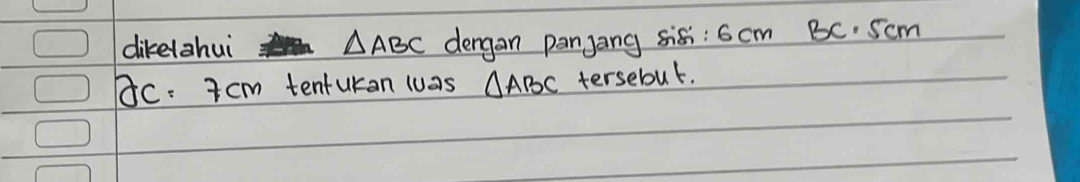 diketahui △ABC dengan panjang sisi : 6cm BC = 5cm
ac = 7cm tentukan luas △ABC tersebut.